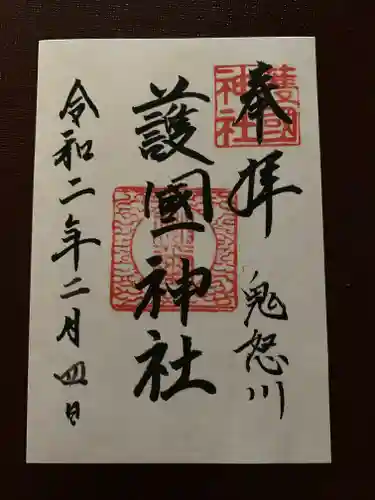 奉拝
鬼怒川
護國神社
令和二年二月四日
護國
神社